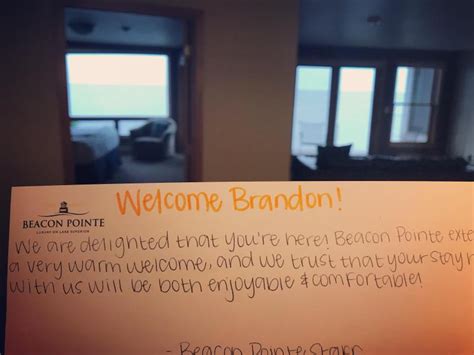 Welcome Brandon!
BEACON POINTE
LUXURY ON LAKE SUPERIOR
We are delighted that you're here! Beacon Pointe exte
a very warm welcome, and we trust that your stay
with us will be both enjoyable & comfortable!
- Beacon Pointe